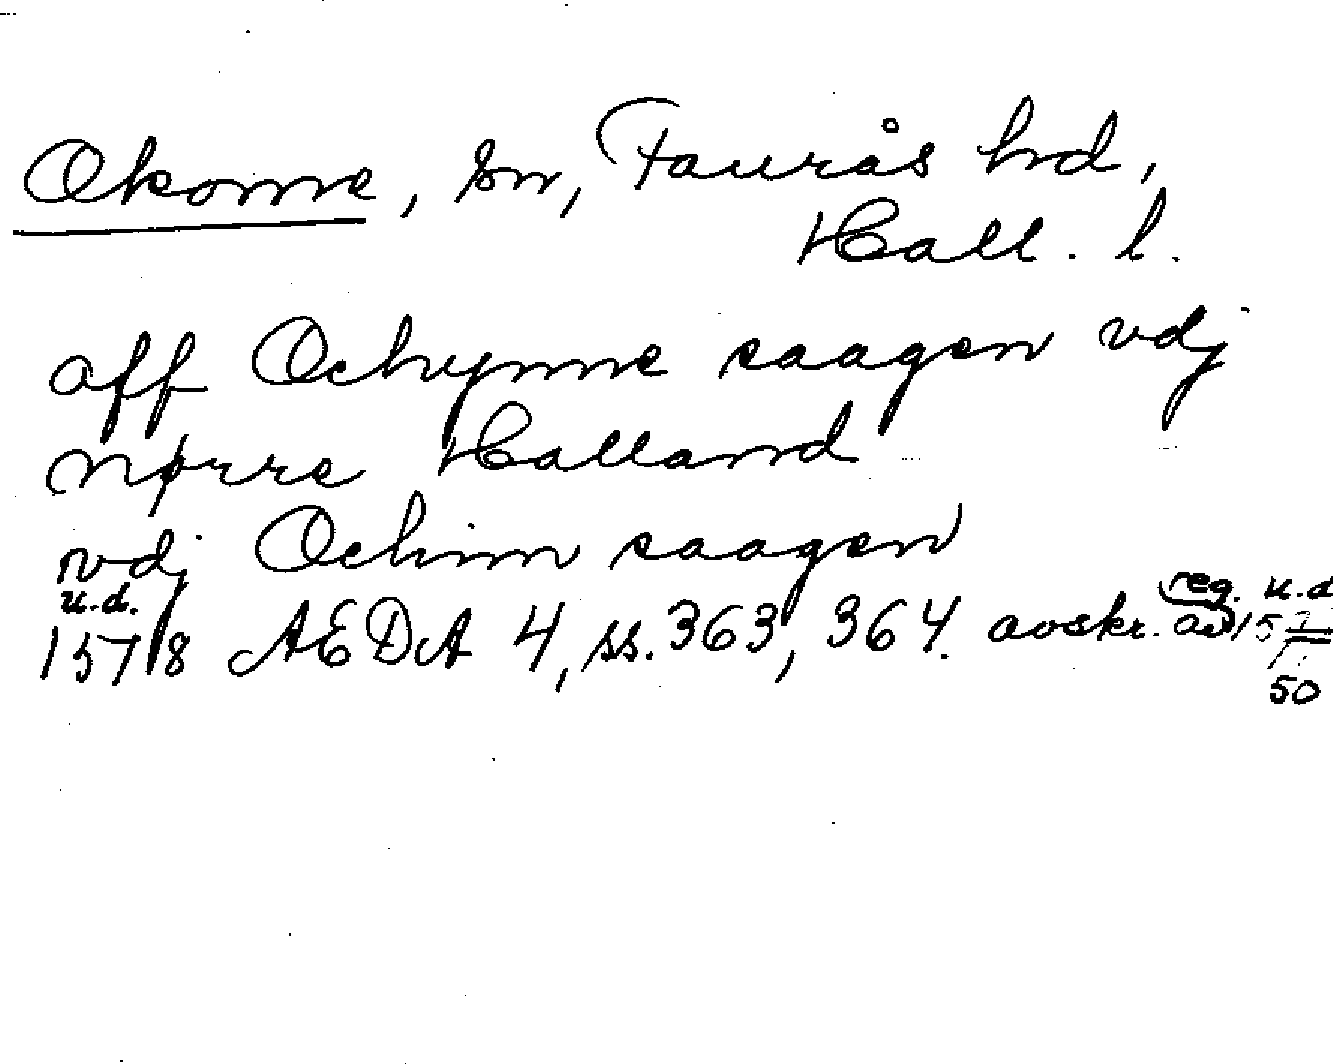 Okome, sn, Faurås hd,
Hall. l.
aff Ochymme saagen vdj
nørre Halland
vdj Ochim saagen
u.d. reg. u.d
1578 AEDA 4, ss. 363, 364. avskr. av 15
50